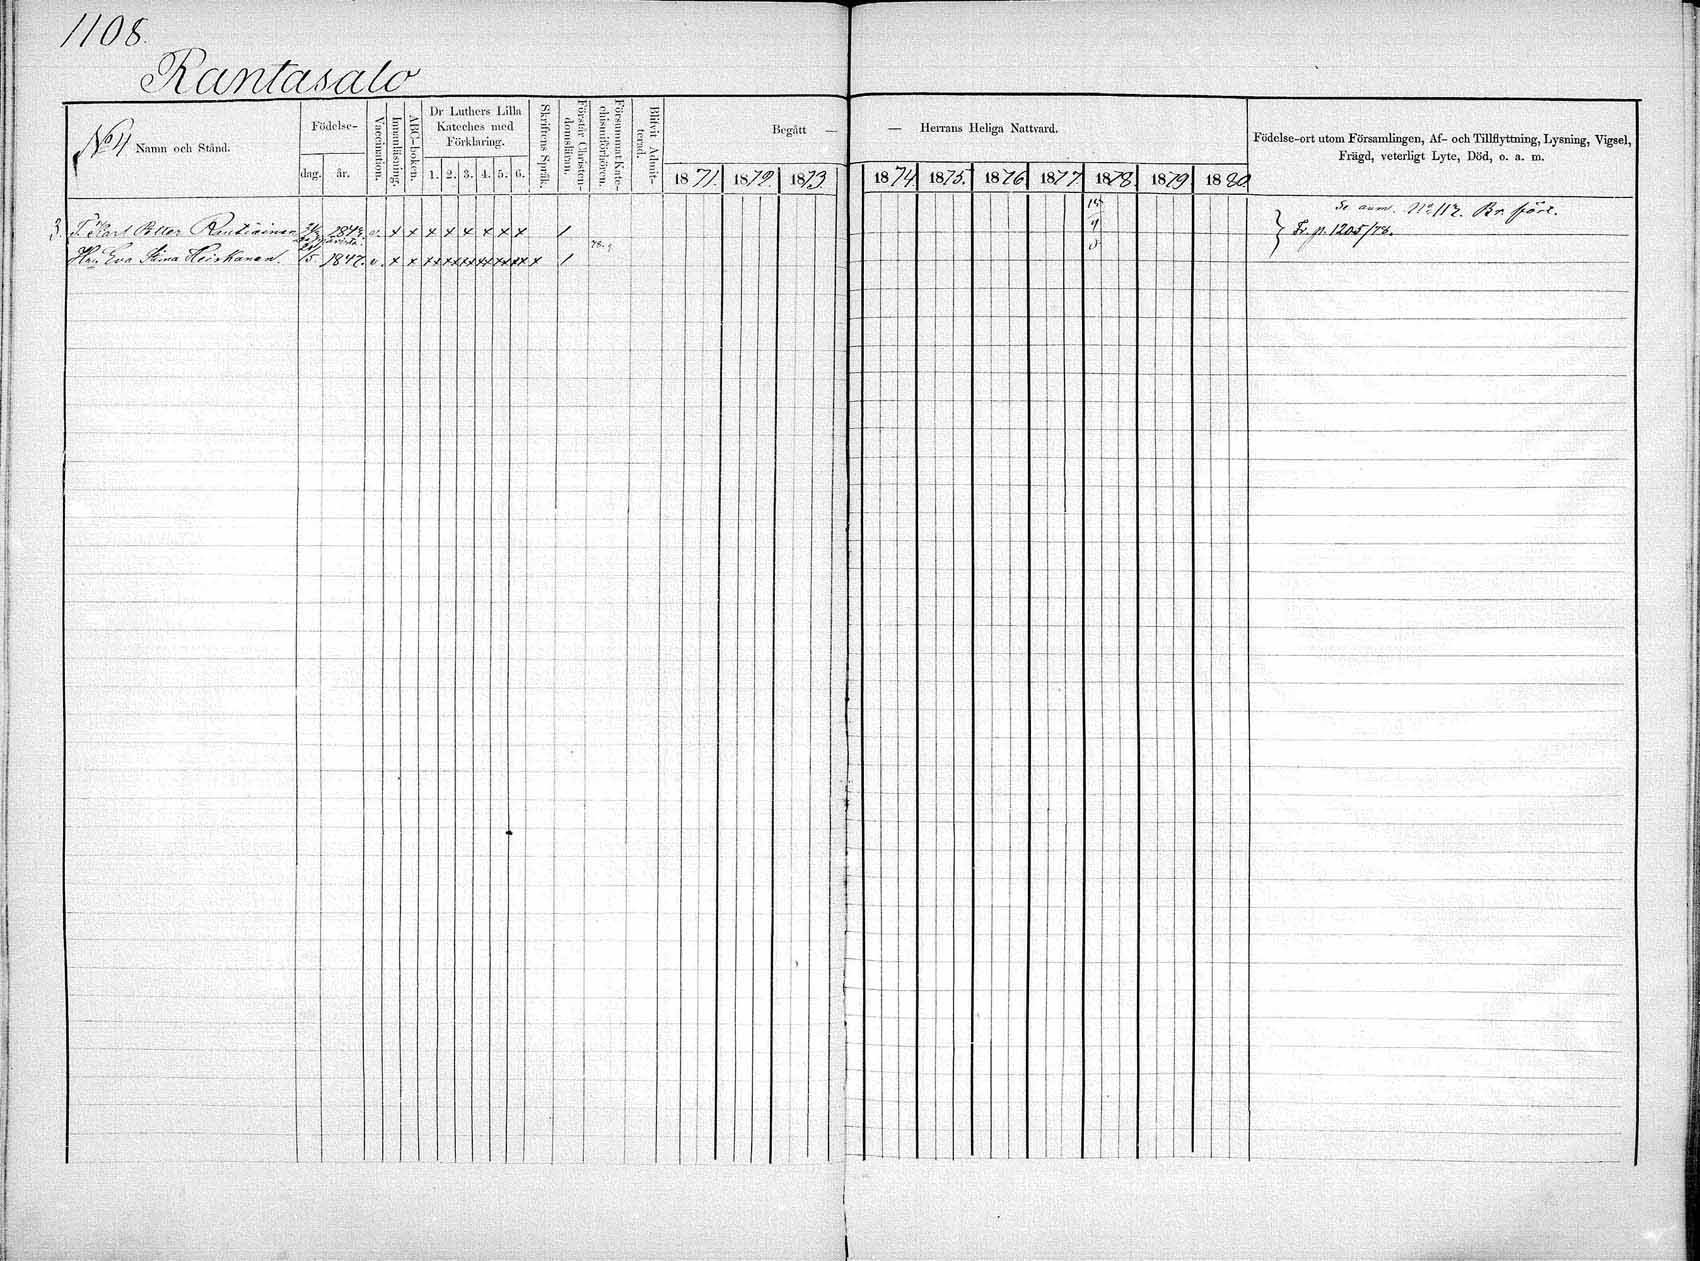 1108.
Rantasalo
No 4 Namn och Stånd.
Födelse-
dag. år.
Vaccination.
Innanläsning.
ABC-boken.
Dr Luthers Lilla
Kateches med
Förklaring.
1. 2. 3. 4. 5. 6.
Skriftens Språk.
Förstår Christen-
domsläran.
Försummat Kate-
chismiförhören.
Blifvit Admit-
terad.
Begått — — Herrans Heliga Nattvard.
1871. 1872. 1873. 1874. 1875. 1876. 1877. 1878. 1879 1880.
Födelse-ort utom Församlingen, Af- och Tillflyttning, Lysning, Vigsel,
Frägd, veterligt Lyte, Död, o. a. m.
Se anm. No 112. Br. förl.
3. Karl Petter Rautiainen 1843. v. x x x x x x x x 1 Fr. p. 1205/78.
78.
Hu. Eva Stina Heiskanen. 1847. v. x x xx xx xx xx xx xx x 1